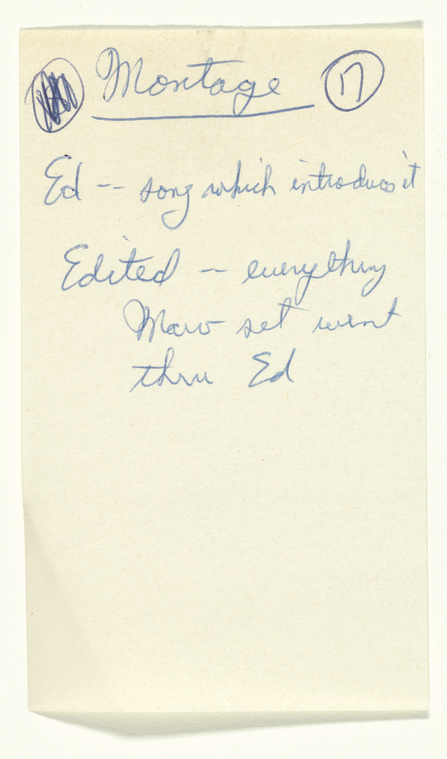 Montage 17
Ed -- song which introduces it
Edited -- everything
Marv set went
thru Ed